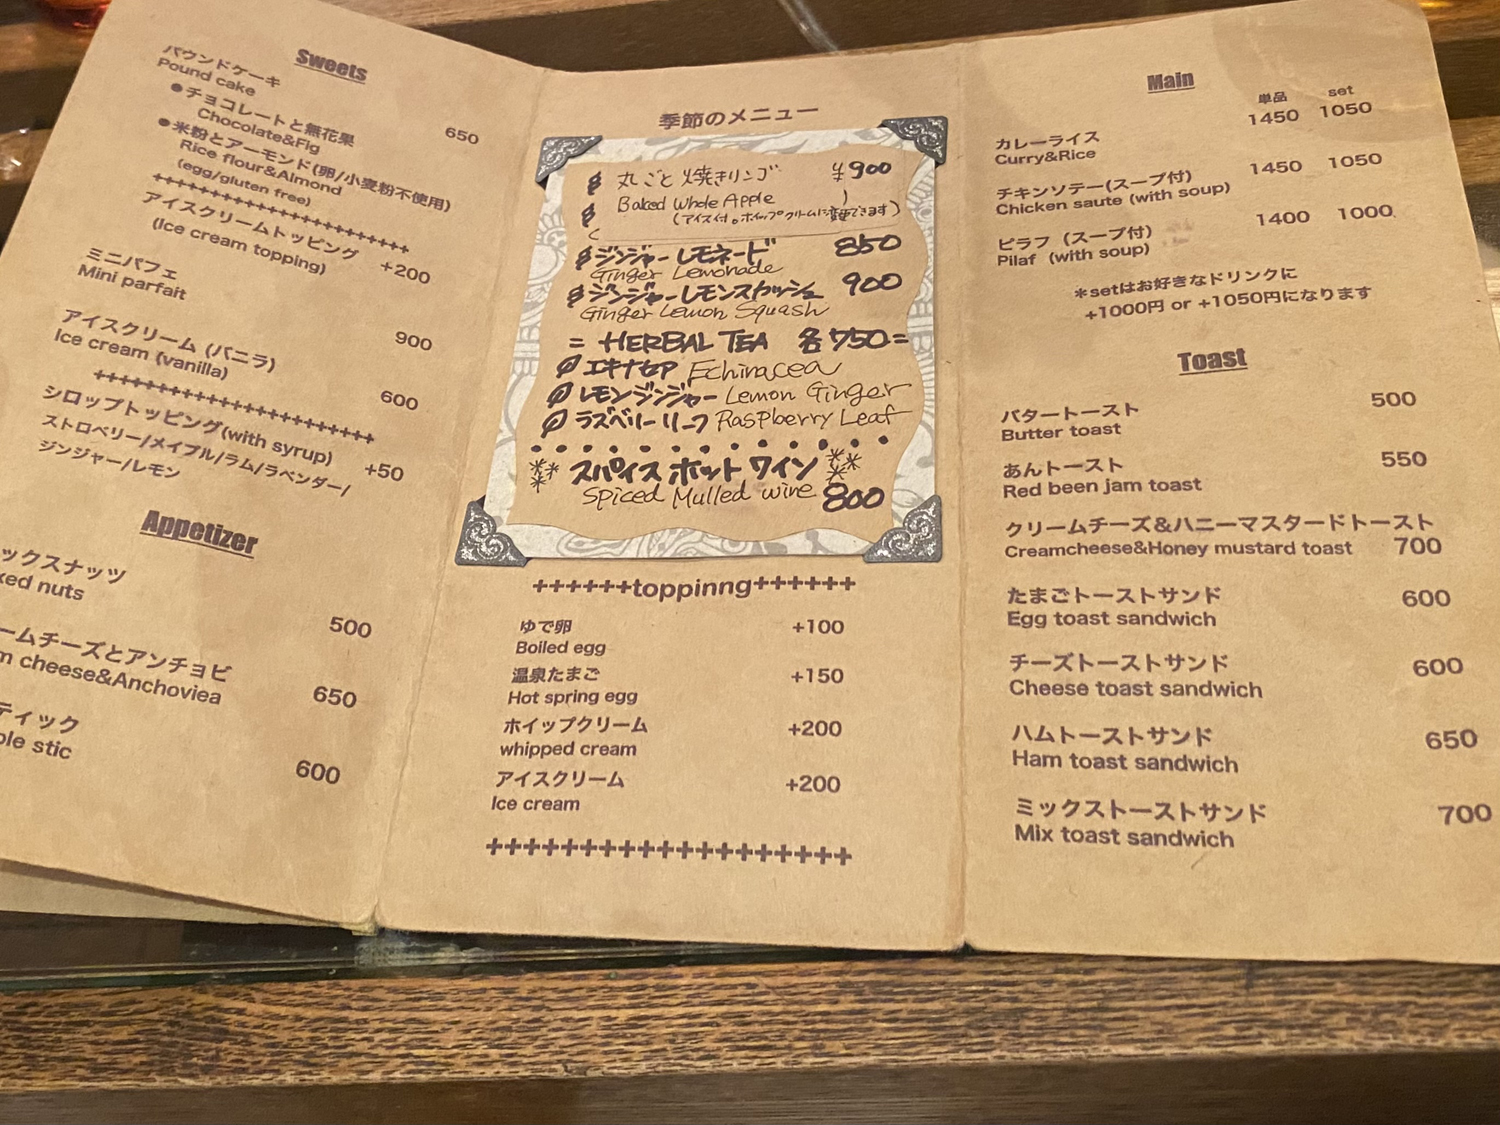 Sweets
パウンドケーキ
Pound cake
650
●チョコレートと無花果
Chocolate&Fig
●米粉とアーモンド(卵/小麦粉不使用)
Rice flour&Almond
(egg/gluten free)
++++++++++++++++++
アイスクリームトッピング
(Ice cream topping) +200
ミニパフェ
Mini parfait
900
アイスクリーム (バニラ)
Ice cream (vanilla)
600
++++++++++++++++++++
シロップトッピング(with syrup) +50
ストロベリー/メイプル/ラム/ラベンダー/
ジンジャー/レモン
Appetizer
ックスナッツ
xed nuts
500
ームチーズとアンチョビ
m cheese&Anchoviea
650
ティック
ole stic
600
季節のメニュー
丸ごと焼きリンゴ ¥900
Baked Whole Apple
(アイス付。ホイップクリームに変更できます)
ジンジャーレモネード 850
Ginger Lemonade
ジンジャーレモンスカッシュ 900
Ginger Lemon Squash
= HERBAL TEA 各750=
エキナセア Echinacea
レモンジンジャー Lemon Ginger
ラズベリーリーフ Raspberry Leaf
スパイスホットワイン
Spiced Mulled wine 800
++++++toppinng++++++
ゆで卵 +100
Boiled egg
温泉たまご +150
Hot spring egg
ホイップクリーム +200
whipped cream
アイスクリーム +200
Ice cream
+++++++++++++++++++
Main
単品 set
カレーライス 1450 1050
Curry&Rice
チキンソテー(スープ付) 1450 1050
Chicken saute (with soup)
ピラフ (スープ付) 1400 1000
Pilaf (with soup)
＊setはお好きなドリンクに
+1000円 or +1050円になります
Toast
バタートースト 500
Butter toast
あんトースト 550
Red been jam toast
クリームチーズ＆ハニーマスタードトースト
Creamcheese&Honey mustard toast 700
たまごトーストサンド 600
Egg toast sandwich
チーズトーストサンド 600
Cheese toast sandwich
ハムトーストサンド 650
Ham toast sandwich
ミックストーストサンド 700
Mix toast sandwich